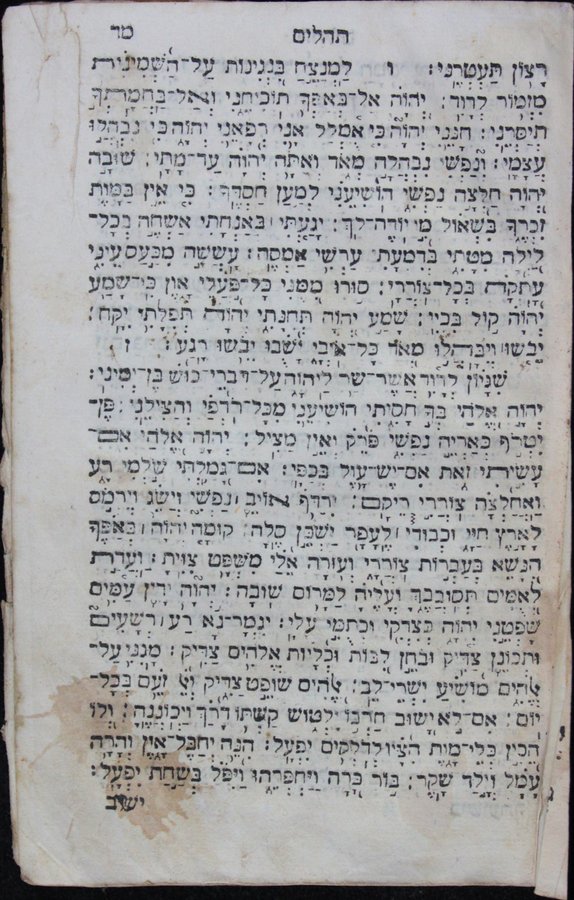 תהלים מד
רָצוֹן תַּעְטְרֶנּוּ׃ ו לַמְנַצֵּחַ בִּנְגִינוֹת עַל־הַשְּׁמִינִית
מִזְמוֹר לְדָוִד׃ יְהוָה אַל־בְּאַפְּךָ תוֹכִיחֵנִי וְאַל־בַּחֲמָתְךָ
תְיַסְּרֵנִי׃ חָנֵּנִי יְהוָה כִּי אֻמְלַל אָנִי רְפָאֵנִי יְהוָה כִּי נִבְהֲלוּ
עֲצָמָי׃ וְנַפְשִׁי נִבְהֲלָה מְאֹד וְאַתָּה יְהוָה עַד־מָתָי׃ שׁוּבָה
יְהוָה חַלְּצָה נַפְשִׁי הוֹשִׁיעֵנִי לְמַעַן חַסְדֶּךָ׃ כִּי אֵין בַּמָּוֶת
זִכְרֶךָ בִּשְׁאוֹל מִי יוֹדֶה־לָּךְ׃ יָגַעְתִּי בְּאַנְחָתִי אַשְׂחֶה בְכָל־
לַיְלָה מִטָּתִי בְּדִמְעָתִי עַרְשִׂי אַמְסֶה׃ עָשְׁשָׁה מִכַּעַס עֵינִי
עָתְקָה בְּכָל־צוֹרְרָי׃ סוּרוּ מִמֶּנִּי כָּל־פֹּעֲלֵי אָוֶן כִּי־שָׁמַע
יְהוָה קוֹל בִּכְיִי׃ שָׁמַע יְהוָה תְּחִנָּתִי יְהוָה תְּפִלָּתִי יִקָּח׃
יֵבֹשׁוּ וְיִבָּהֲלוּ מְאֹד כָּל־אֹיְבָי יָשֻׁבוּ יֵבֹשׁוּ רָגַע׃ ז
שִׁגָּיוֹן לְדָוִד אֲשֶׁר־שָׁר לַיהוָה עַל־דִּבְרֵי־כוּשׁ בֶּן־יְמִינִי׃
יְהוָה אֱלֹהַי בְּךָ חָסִיתִי הוֹשִׁיעֵנִי מִכָּל־רֹדְפַי וְהַצִּילֵנִי׃ פֶּן־
יִטְרֹף כְּאַרְיֵה נַפְשִׁי פֹּרֵק וְאֵין מַצִּיל׃ יְהוָה אֱלֹהַי אִם־
עָשִׂיתִי זֹאת אִם־יֶשׁ־עָוֶל בְּכַפָּי׃ אִם־גָּמַלְתִּי שׁוֹלְמִי רָע
וָאֲחַלְּצָה צוֹרְרִי רֵיקָם׃ יִרַדֹּף אוֹיֵב נַפְשִׁי וְיַשֵּׂג וְיִרְמֹס
לָאָרֶץ חַיָּי וּכְבוֹדִי לֶעָפָר יַשְׁכֵּן סֶלָה׃ קוּמָה יְהוָה בְּאַפֶּךָ
הִנָּשֵׂא בְּעַבְרוֹת צוֹרְרָי וְעוּרָה אֵלַי מִשְׁפָּט צִוִּיתָ׃ וַעֲדַת
לְאֻמִּים תְּסוֹבְבֶךָּ וְעָלֶיהָ לַמָּרוֹם שׁוּבָה׃ יְהוָה יָדִין עַמִּים
שָׁפְטֵנִי יְהוָה כְּצִדְקִי וּכְתֻמִּי עָלָי׃ יִגְמָר־נָא רַע רְשָׁעִים
וּתְכוֹנֵן צַדִּיק וּבֹחֵן לִבּוֹת וּכְלָיוֹת אֱלֹהִים צַדִּיק׃ מָגִנִּי עַל־
אֱלֹהִים מוֹשִׁיעַ יִשְׁרֵי־לֵב׃ אֱלֹהִים שׁוֹפֵט צַדִּיק וְאֵל זֹעֵם בְּכָל־
יוֹם׃ אִם־לֹא יָשׁוּב חַרְבּוֹ יִלְטוֹשׁ קַשְׁתּוֹ דָרַךְ וַיְכוֹנְנֶהָ׃ וְלוֹ
הֵכִין כְּלֵי־מָוֶת חִצָּיו לְדֹלְקִים יִפְעָל׃ הִנֵּה יְחַבֶּל־אָוֶן וְהָרָה
עָמָל וְיָלַד שָׁקֶר׃ בּוֹר כָּרָה וַיַּחְפְּרֵהוּ וַיִּפֹּל בְּשַׁחַת יִפְעָל׃
ישוב